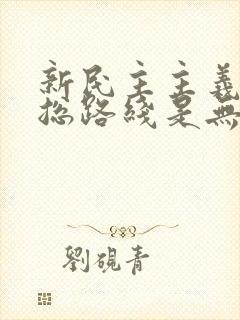 新民主主義
总路綫是無
劉硯青